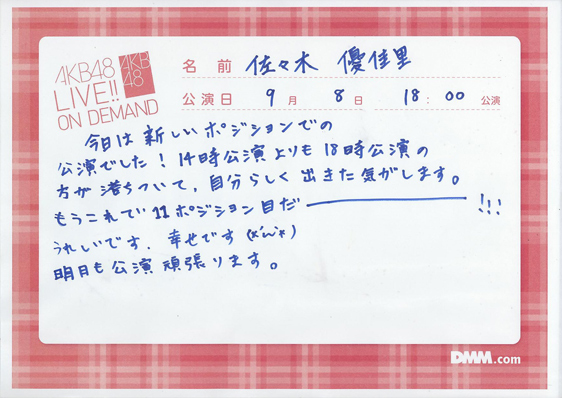 AKB48
LIVE!!
ON DEMAND
AKB
48
名前 佐々木 優佳里
公演日 9月 8日 18:00 公演
今日は新しいポジションでの
公演でした！14時公演よりも18時公演の
方が落ちついて、自分らしく出きた気がします。
もうこれで11ポジション目だ――――!!!
うれしいです。幸せです(*´ω`*)
明日も公演頑張ります。
DMM.com